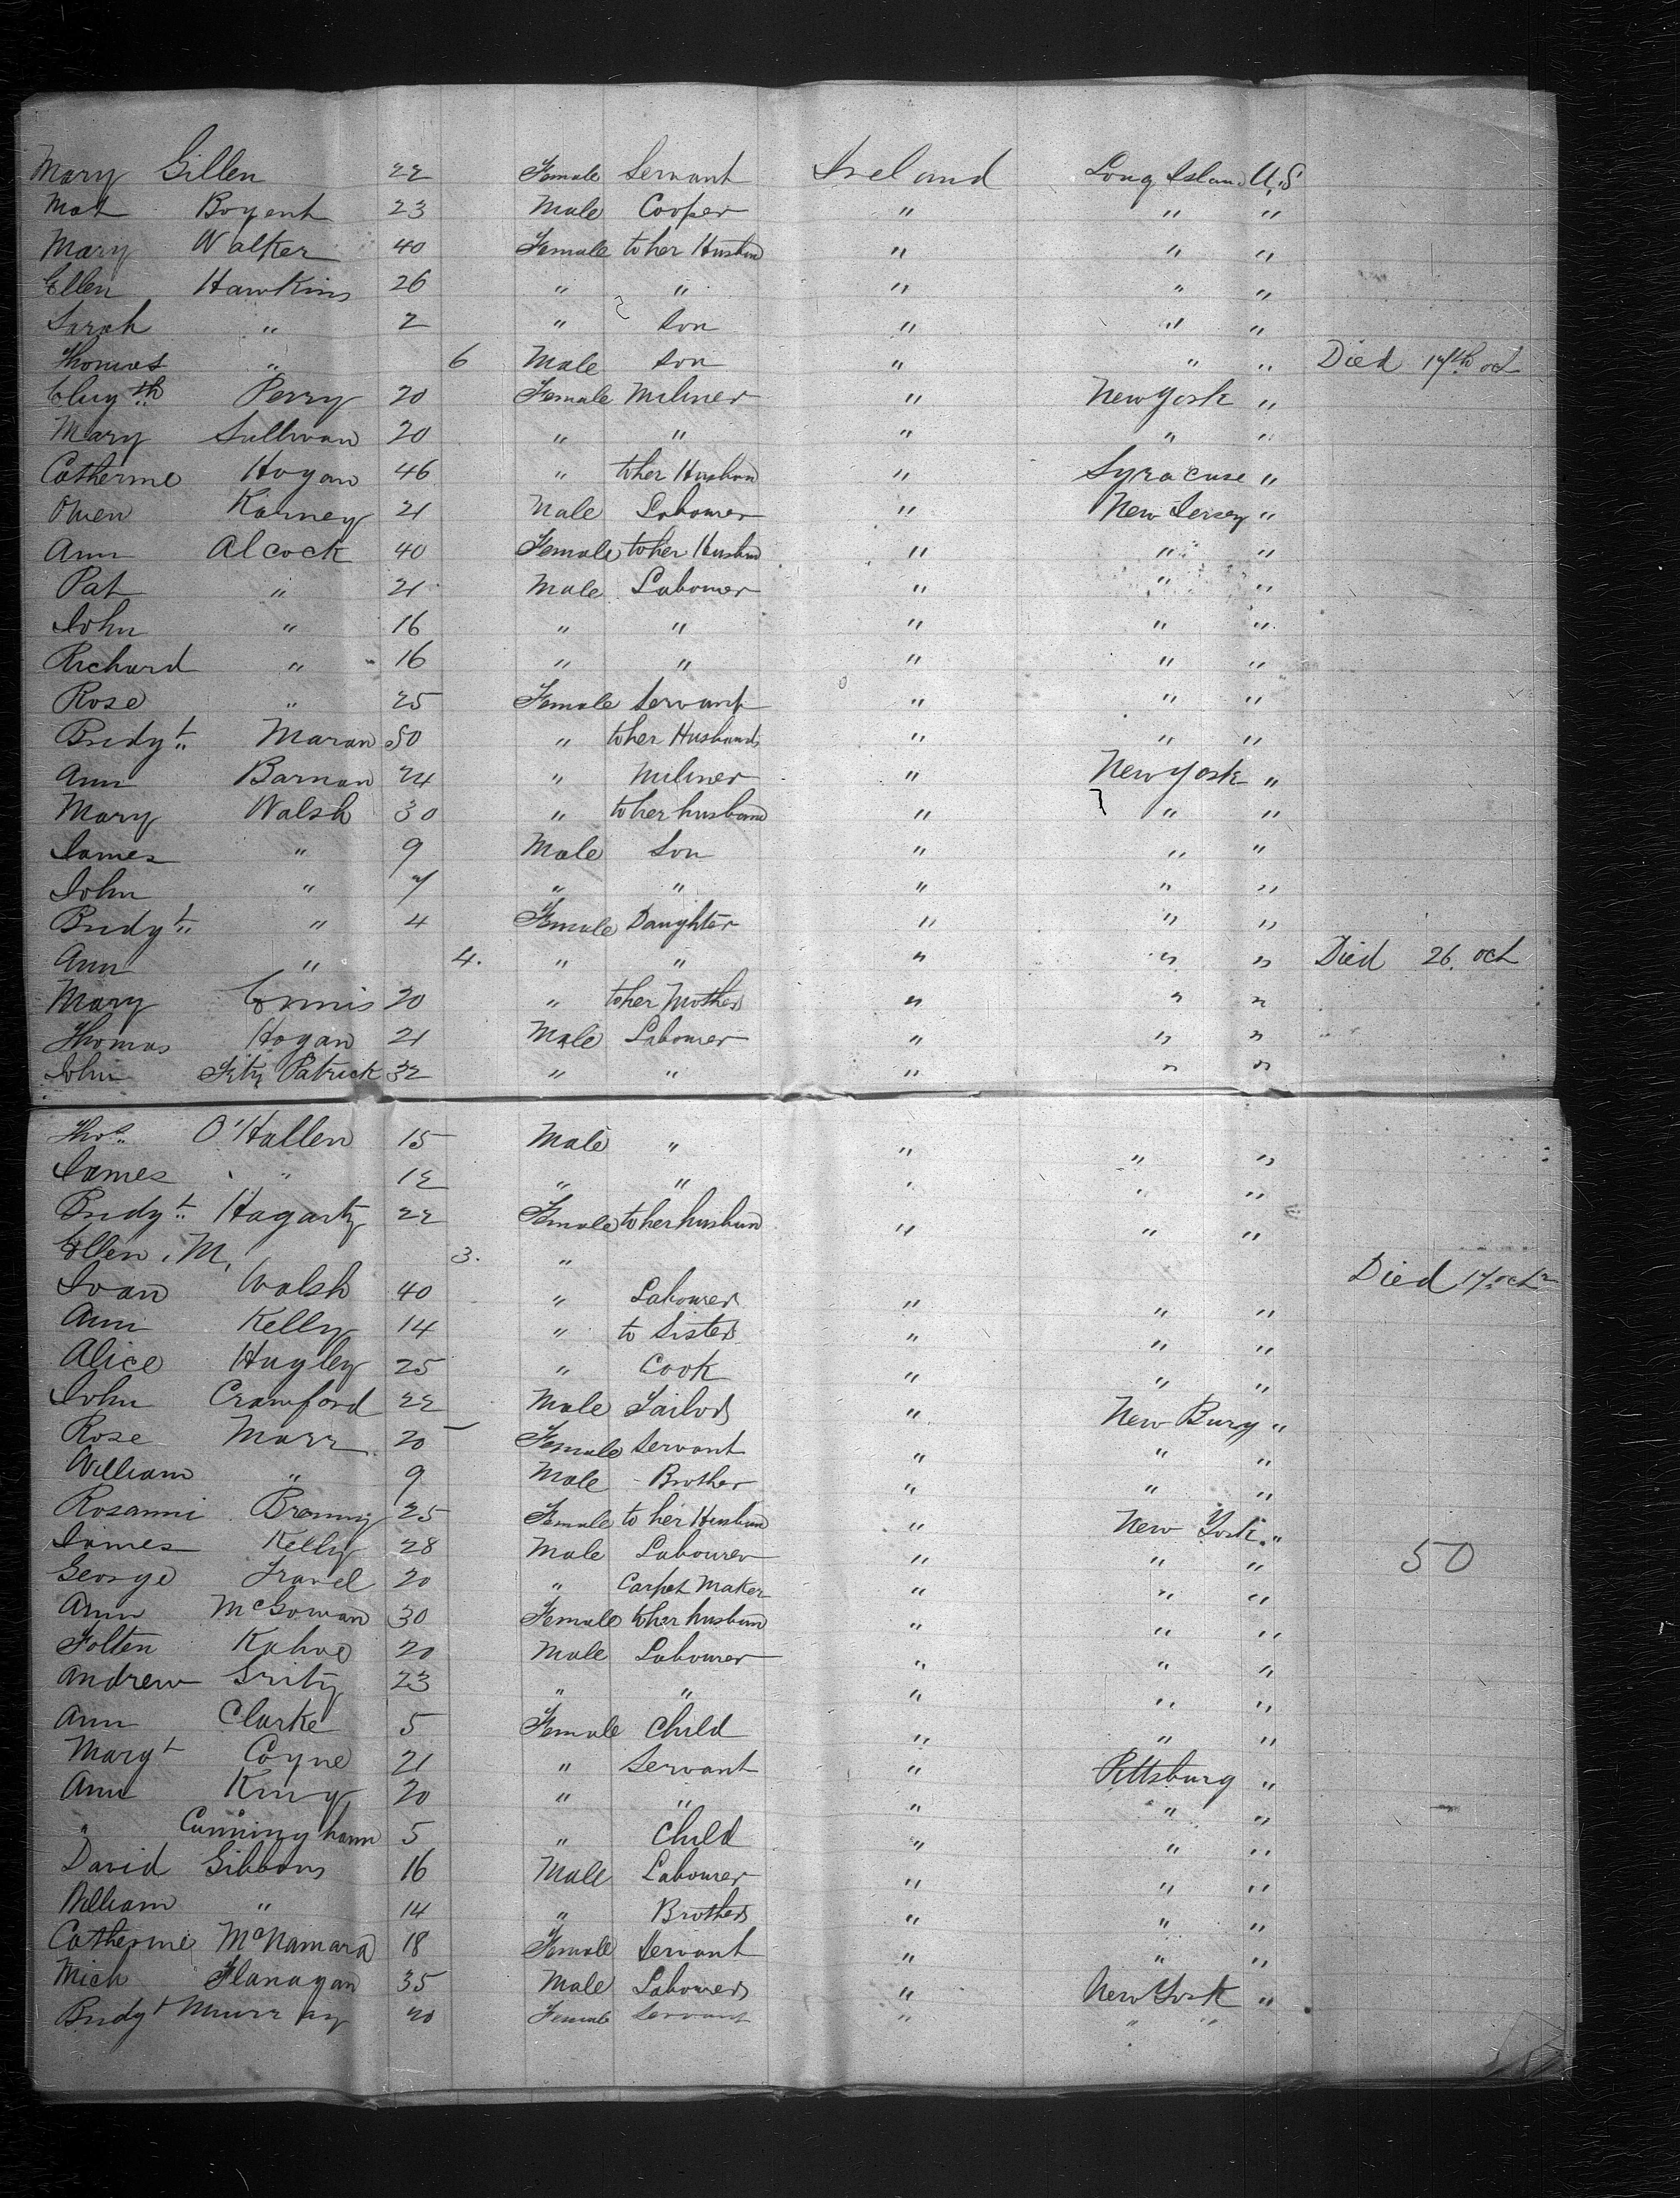 Mary Gillen 22 Female Servant Ireland Long Island U.S
Mat Bogent 23 Male Cooper " " "
Mary Walker 40 Female to her Husband " " "
Ellen Hawkins 26 " " " " "
Sarah " 2 " Son " " "
Thomas " 6 Male Son " " " Died 17th oct
Perry 20 Female Miliner " New York "
Mary Sullivan 20 " " " " "
Catherine Hogan 46 " to her Husban " Syracuse "
Owen Karney 21 Male Labourer " New Jersey "
Ann Alcock 40 Female to her Husban " " "
Pat " 21 Male Labourer " " "
John " 16 " " " " "
Richard " 16 " " " " "
Rose " 25 Female Servant " " "
Bridgt Maran 50 " to her Husband " " "
Ann Barnan 24 " Miliner " New York "
Mary Walsh 30 " to her husband " " "
James " 9 Male Son " " "
John " 7 " " " " "
Bridgt " 4 Female Daughter " " "
Ann " 4. " " " " " Died 26. oct
Mary Ennis 20 " to her Mother " " "
Thomas Hogan 21 Male Labourer " " "
John Fitz Patrick 32 " " " " "
Thos O'Hallen 15 Male " " " "
James " 12 " " " " "
Bridgt Hagarty 22 Female to her husban " " "
Ellen M, 3. " Died 17. octr
Joan Walsh 40 " Labourer " " "
Ann Kelly 14 " to Sister " " "
Alice Hugley 25 " Cook " " "
John Crawford 22 Male Tailor " New Burg "
Rose Marr 20 Female Servant " " "
William " 9 Male - Brother " " "
Rosanni 25 Female to her Husban " New York "
James Kelly 28 Male Labourer " " " 50
George 20 " Carpet Maker " " "
Ann McGowan 30 Female to her husban " " "
Folten Kahoe 20 Male Labourer " " "
Andrew 23 " " " " "
Ann Clarke 5 Female Child " " "
Margt Coyne 21 " Servant " Pittsburg "
Ann King 20 " " " " "
" Cunningham 5 " Child " " "
David Gibbons 16 Male Labourer " " "
William " 14 " Brother " " "
Catherine McNamara 18 Female Servant " " "
Mich Flanagan 35 Male Labourer " New York "
Bridgt Murray 20 Female Servant " " "